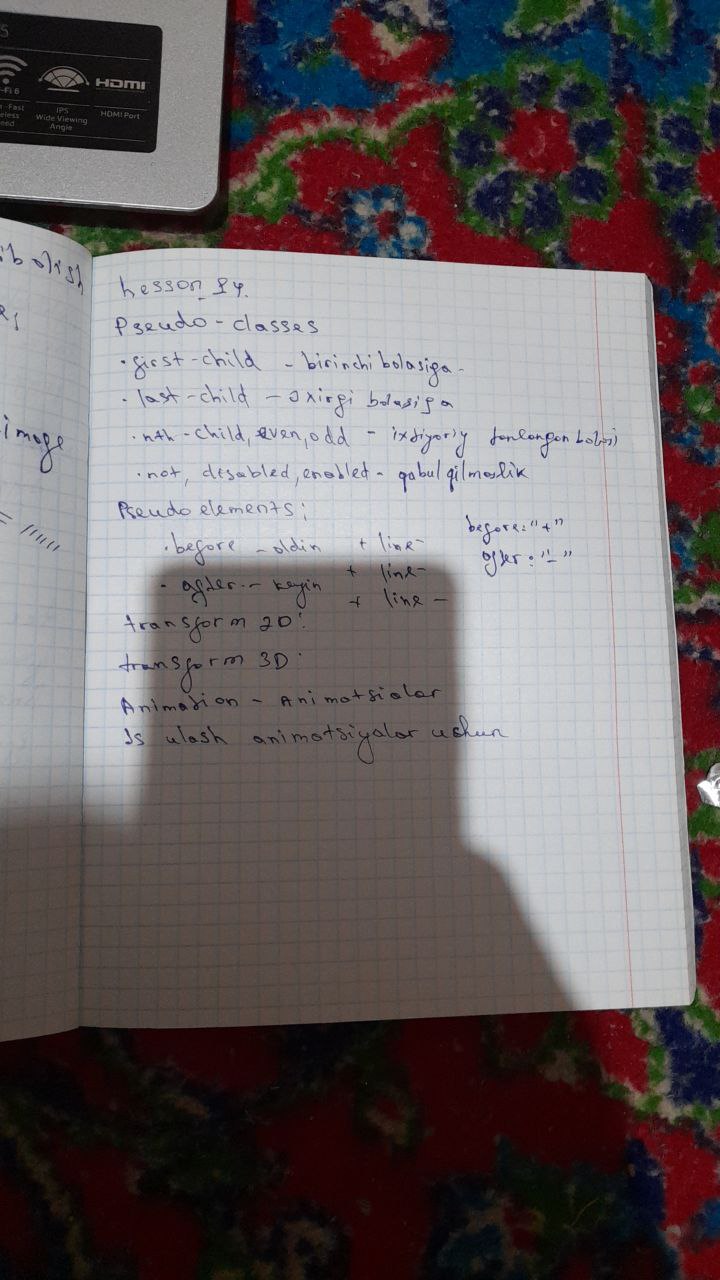 HDMI
-Fi 6
IPS
Wide Viewing
Angle
HDMI Port
Lesson 14.
Pseudo-classes
· first-child - birinchi bolasiga -
· last-child - oxirgi bolasiga
· nth-child, even, odd - ixtiyoriy tanlangan bolasi
· not, disabled, enabled - qabul qilmaslik
Pseudo elements;
· before - oldin + line- before: "+"
+ line- after: "-"
· after - keyin + line -
transform 2D:
transform 3D:
Animation - Animatsialar
Is ulash animatsiyalar uchun
image